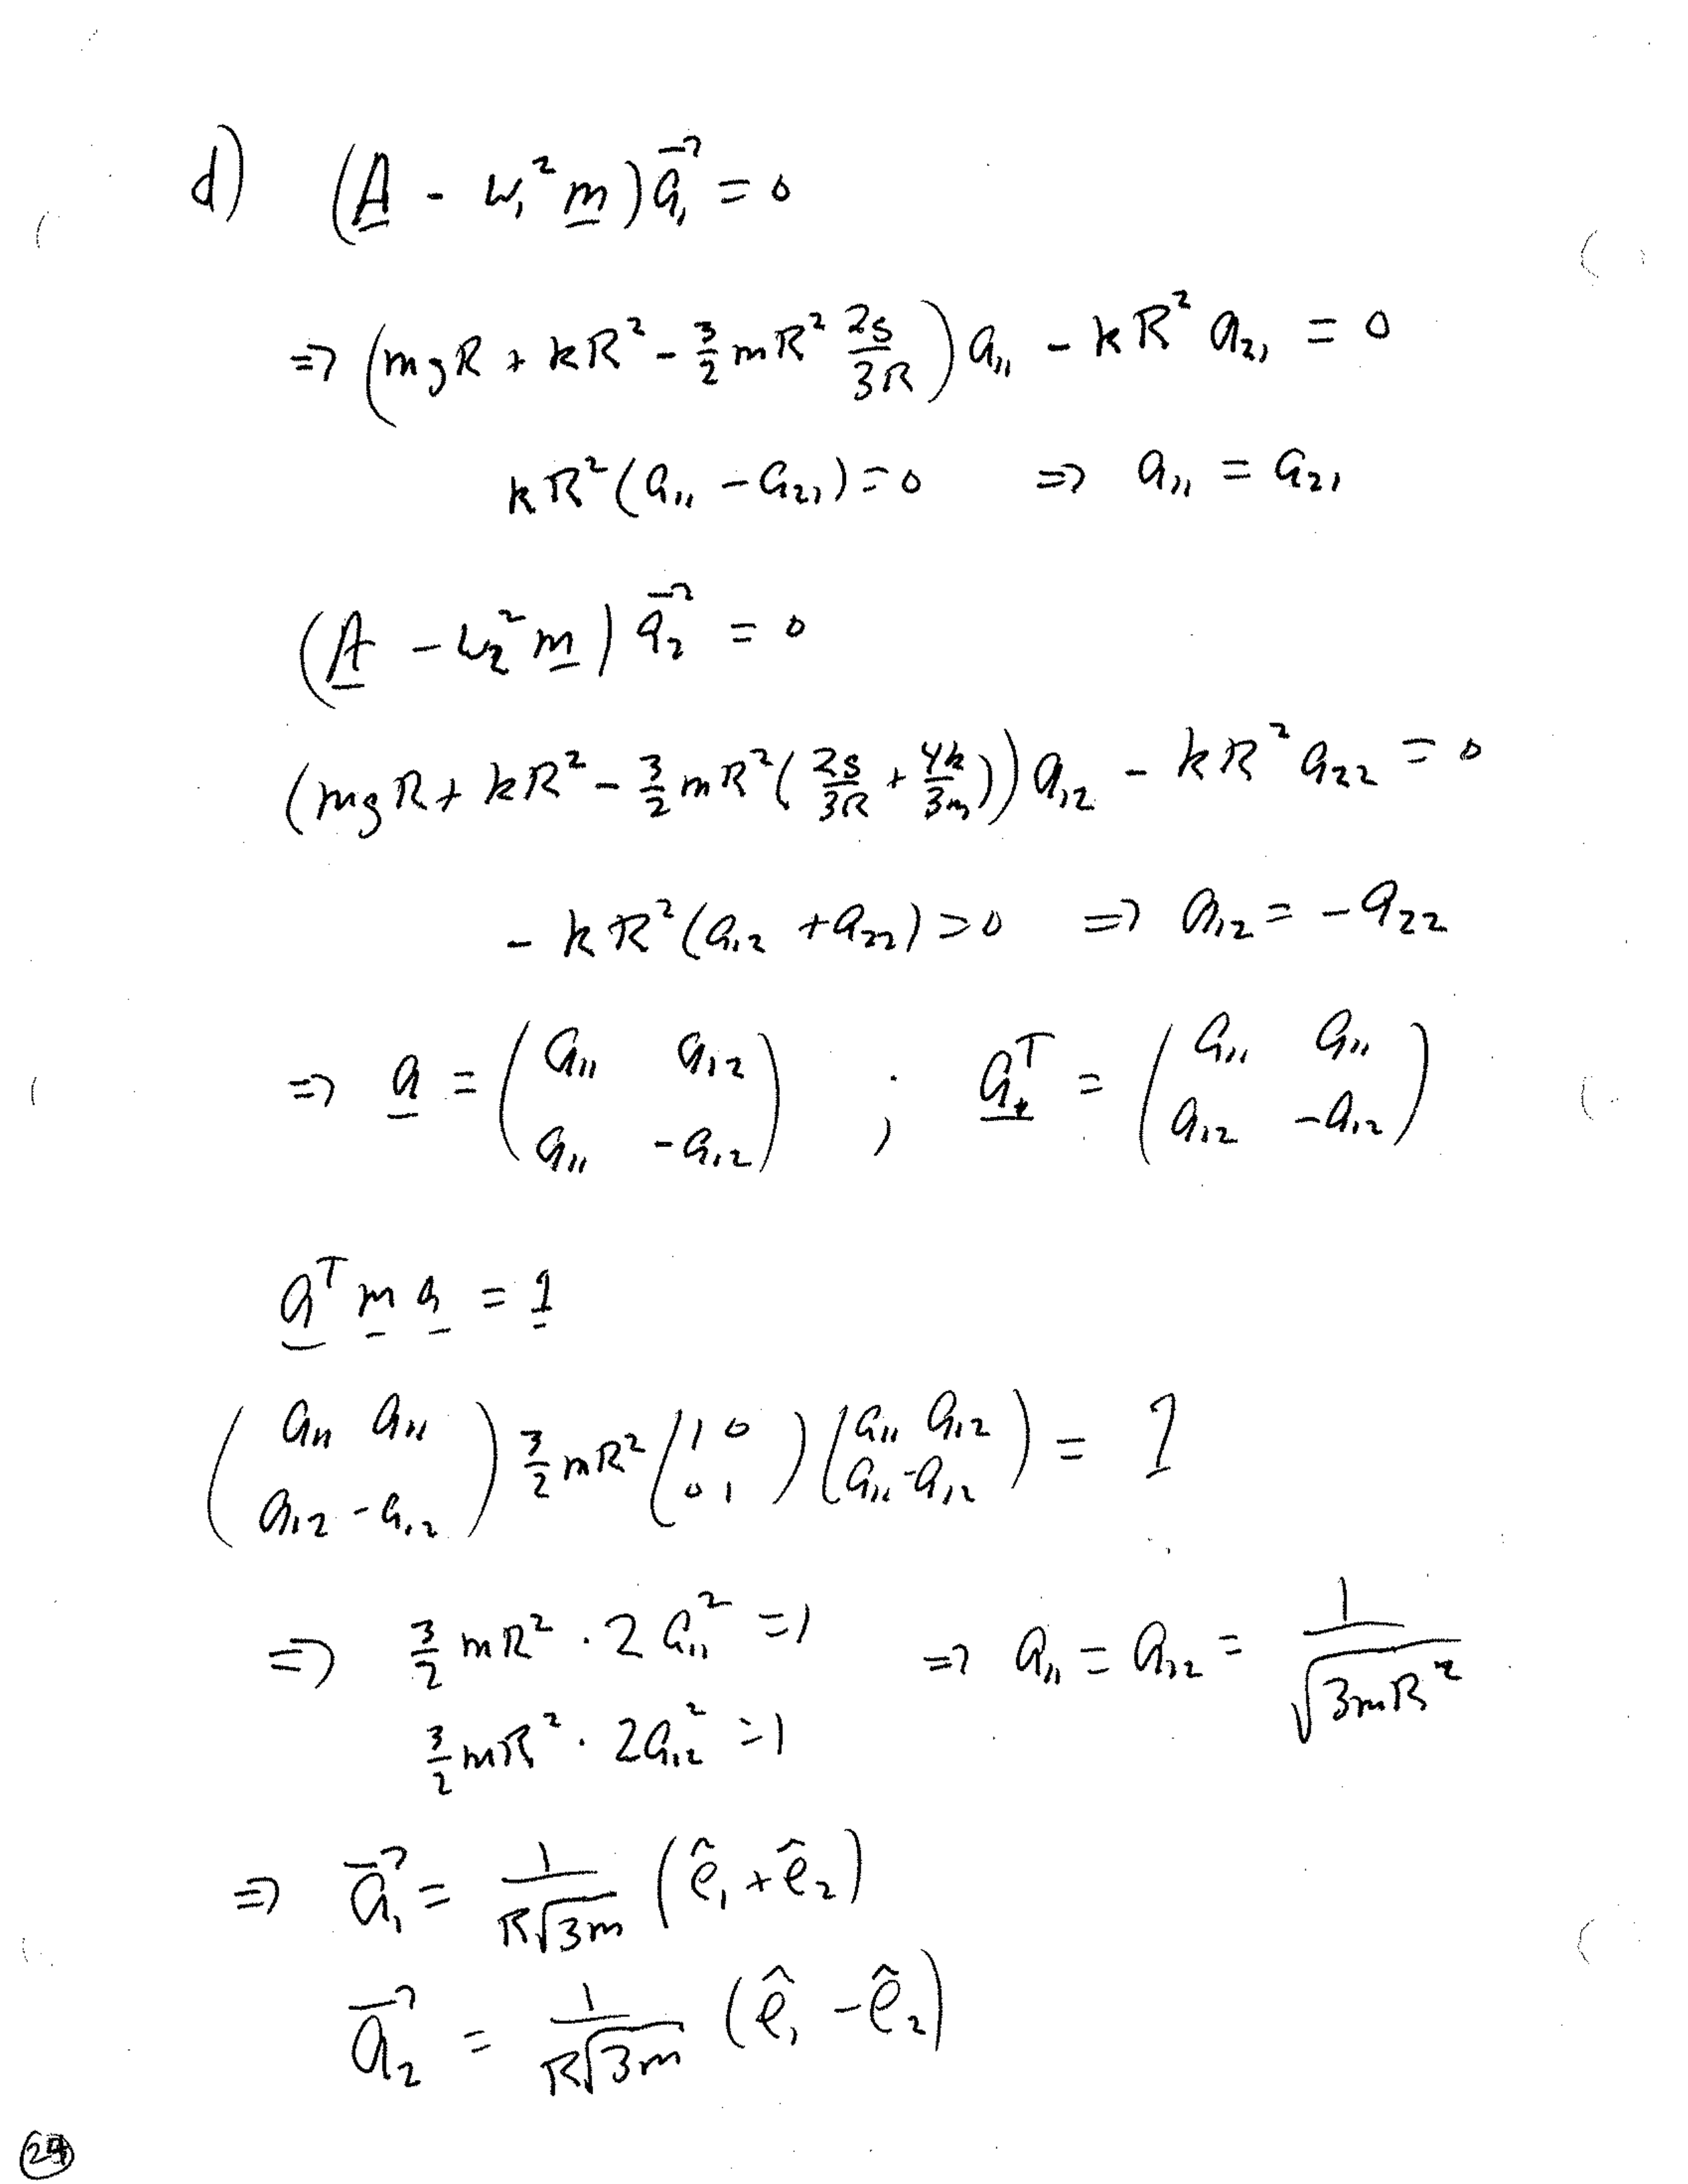 d) (A̲ - ω₁² m̲) a⃗₁ = 0
⇒ (mgR + kR² - 3/2 mR² 2g/3R) a₁₁ - kR² a₂₁ = 0
kR² (a₁₁ - a₂₁) = 0 ⇒ a₁₁ = a₂₁
(A̲ - ω₂² m̲) a⃗₂ = 0
(mgR + kR² - 3/2 mR² (2g/3R + 4k/3m)) a₁₂ - kR² a₂₂ = 0
- kR² (a₁₂ + a₂₂) = 0 ⇒ a₁₂ = -a₂₂
⇒ a̲ = (a₁₁ a₁₂ ; a₁₁ -a₁₂) ; a̲ᵀ = (a₁₁ a₁₁ ; a₁₂ -a₁₂)
a̲ᵀ m̲ a̲ = 1̲
(a₁₁ a₁₁ ; a₁₂ -a₁₂) 3/2 mR² (1 0 ; 0 1) (a₁₁ a₁₂ ; a₁₁ -a₁₂) = 1
⇒ 3/2 mR² · 2a₁₁² = 1 ⇒ a₁₁ = a₁₂ = 1/√(3mR²)
3/2 mR² · 2a₁₂² = 1
⇒ a⃗₁ = 1/(R√3m) (ê₁ + ê₂)
a⃗₂ = 1/(R√3m) (ê₁ - ê₂)